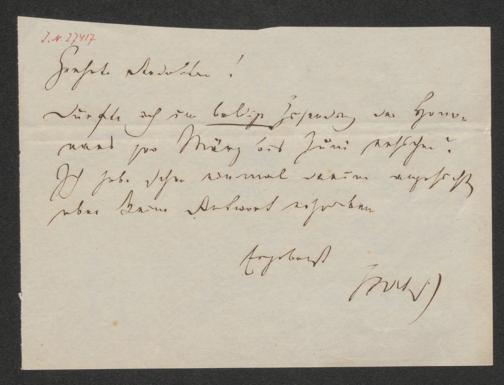 J.N. 27417
Geehrte Redaktion!
Dürfte ich um baldige Zusendung des Hono-
rars pro März bis Juni ersuchen?
Ich habe schon einmal darum angesucht
aber keine Antwort erhalten
Ergebenst